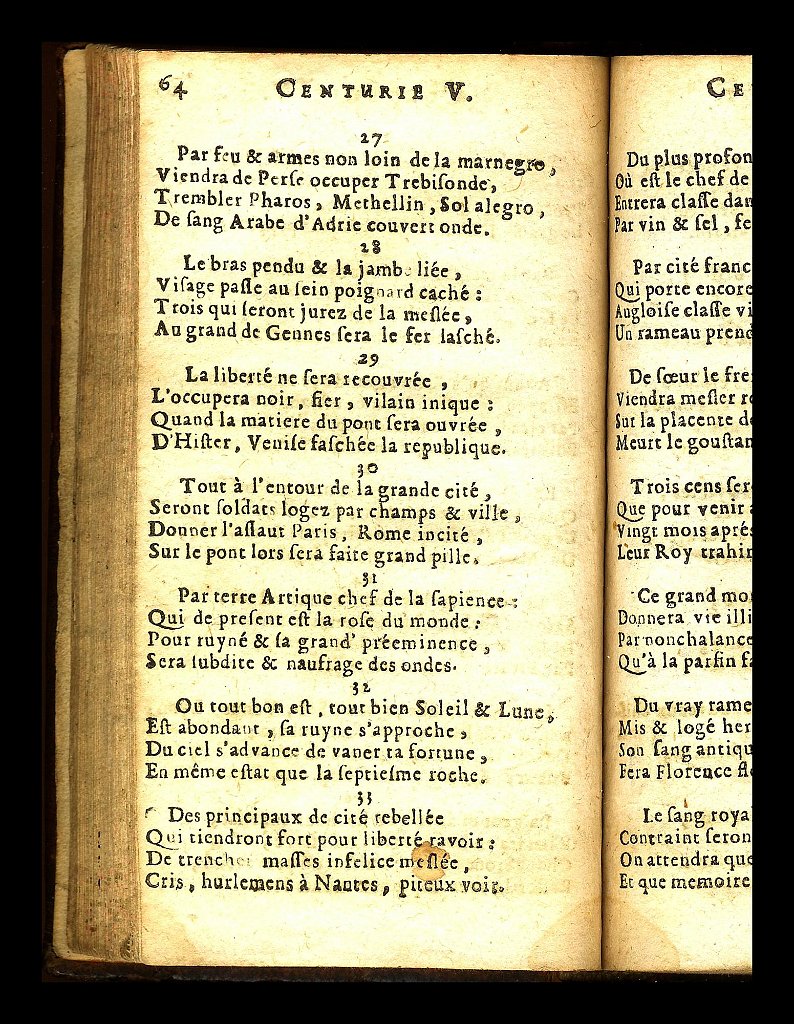 64
CENTURIE V.
27
Par feu & armes non loin de la marnegro,
Viendra de Perse occuper Trebisonde,
Trembler Pharos, Methellin, Sol alegro,
De sang Arabe d'Adrie couvert onde.
28
Le bras pendu & la jambe liée,
Visage pasle au sein poignard caché :
Trois qui seront jurez de la meslée,
Au grand de Gennes sera le fer lasché.
29
La liberté ne sera recouvrée,
L'occupera noir, fier, vilain inique :
Quand la matiere du pont sera ouvrée,
D'Hister, Venise faschée la republique.
30
Tout à l'entour de la grande cité,
Seront soldats logez par champs & ville,
Donner l'assaut Paris, Rome incité,
Sur le pont lors sera faite grand pille.
31
Par terre Artique chef de la sapience :
Qui de present est la rose du monde :
Pour ruyné & sa grand' préeminence,
Sera subdite & naufrage des ondes.
32
Ou tout bon est, tout bien Soleil & Lune,
Est abondant, sa ruyne s'approche,
Du ciel s'advance de vaner ta fortune,
En même estat que la septiesme roche.
33
Des principaux de cité rebellée
Qui tiendront fort pour liberté ravoir :
De trencher masses infelice meslée,
Cris, hurlemens à Nantes, piteux voir.
CE
Du plus profon
Où est le chef de
Entrera classe dan
Par vin & sel, fe
Par cité franc
Qui porte encore
Angloise classe vi
Un rameau prend
De sœur le fre
Viendra mesler r
Sur la placente d
Meurt le goustan
Trois cens ser
Que pour venir
Vingt mois aprés
Leur Roy trahir
Ce grand mo
Donnera vie illi
Par nonchalance
Qu'à la parfin f
Du vray rame
Mis & logé her
Son sang antiqu
Fera Florence fl
Le sang roya
Contraint seron
On attendra que
Et que memoire